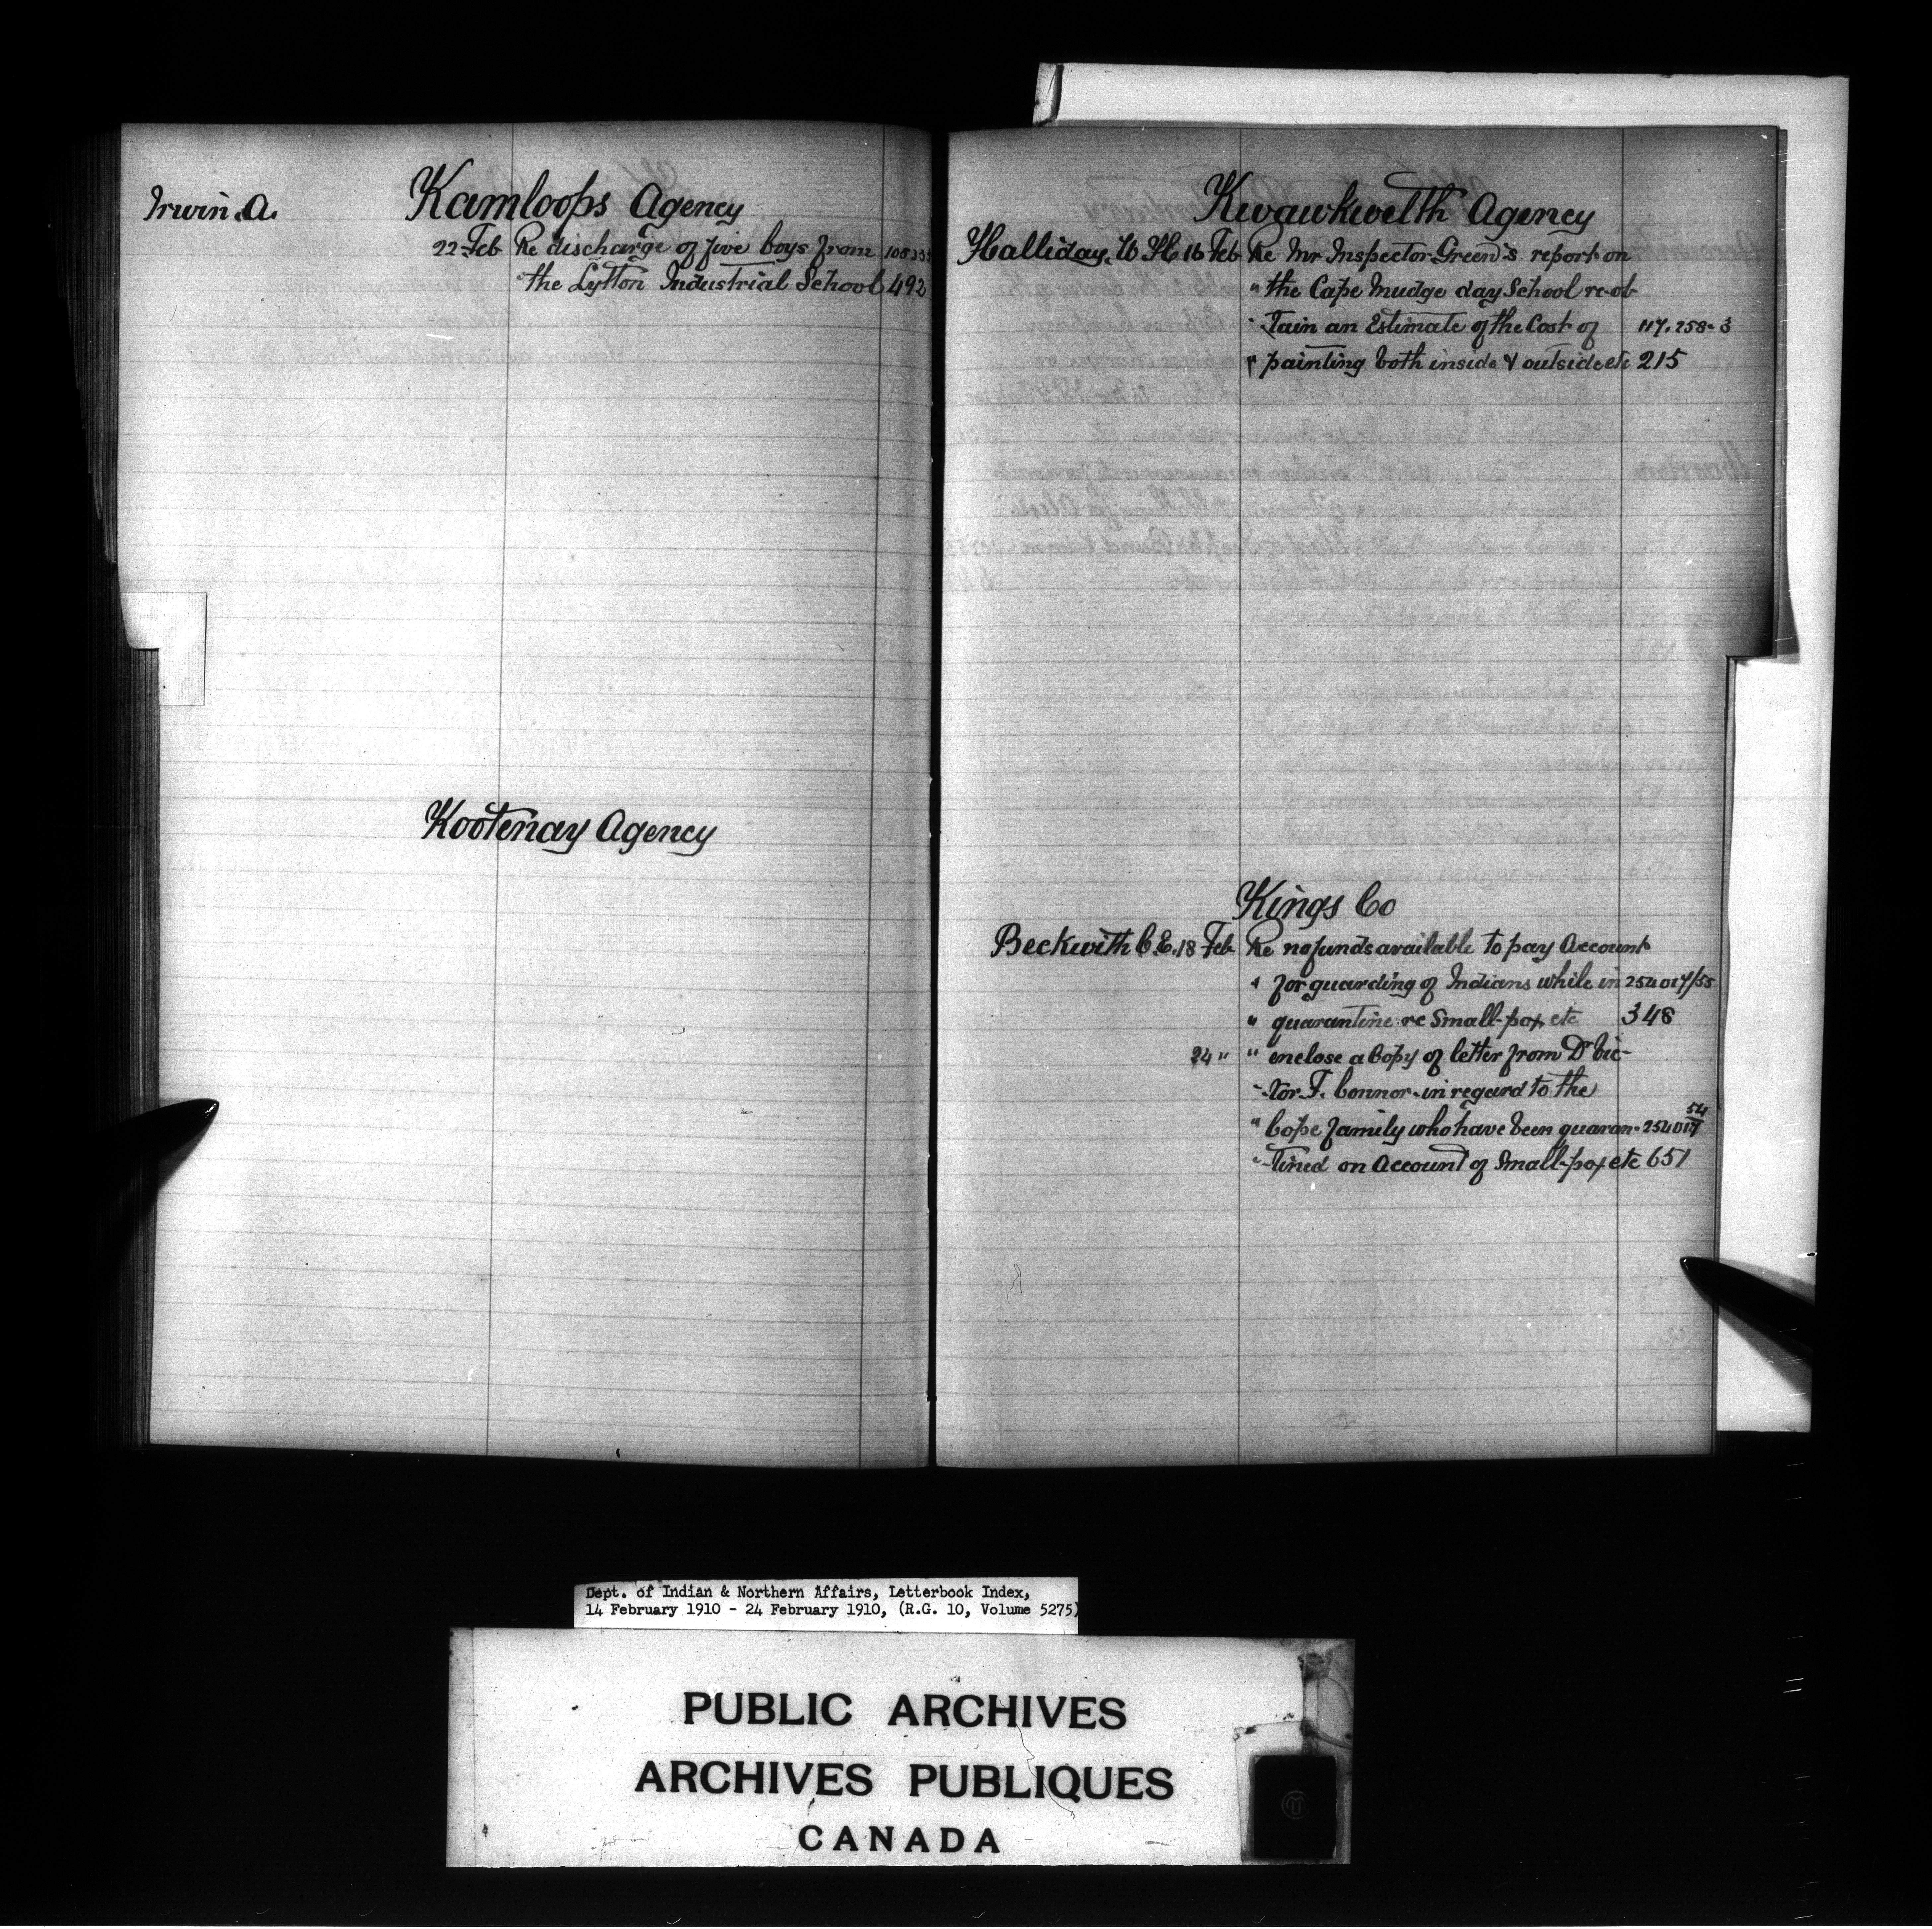 Irwin. A.
Kamloops Agency
22 Feb Re discharge of five boys from
" the Lytton Industrial School 492
Kootenay Agency
Kwawkwelth Agency
Halliday. W. H. 16 Feb Re Mr Inspector Green's report on
" the Cape Mudge day School re-ob-
" -tain an Estimate of the Cost of 117.258-3
" painting both inside & outside etc 215
Kings Co
Beckwith C. E. 18 Feb Re no funds available to pay Account
" for guarding of Indians while in 254017/55
" quarantine re Small-pox etc 348
24 " " enclose a Copy of letter from Dr Vic-
" -tor. F. Connor - in regard to the
" Cope family who have been quaran- 254017 54
" -tined on Account of Small-pox etc 651
Dept. of Indian & Northern Affairs, Letterbook Index,
14 February 1910 - 24 February 1910, (R.G. 10, Volume 5275)
PUBLIC ARCHIVES
ARCHIVES PUBLIQUES
CANADA